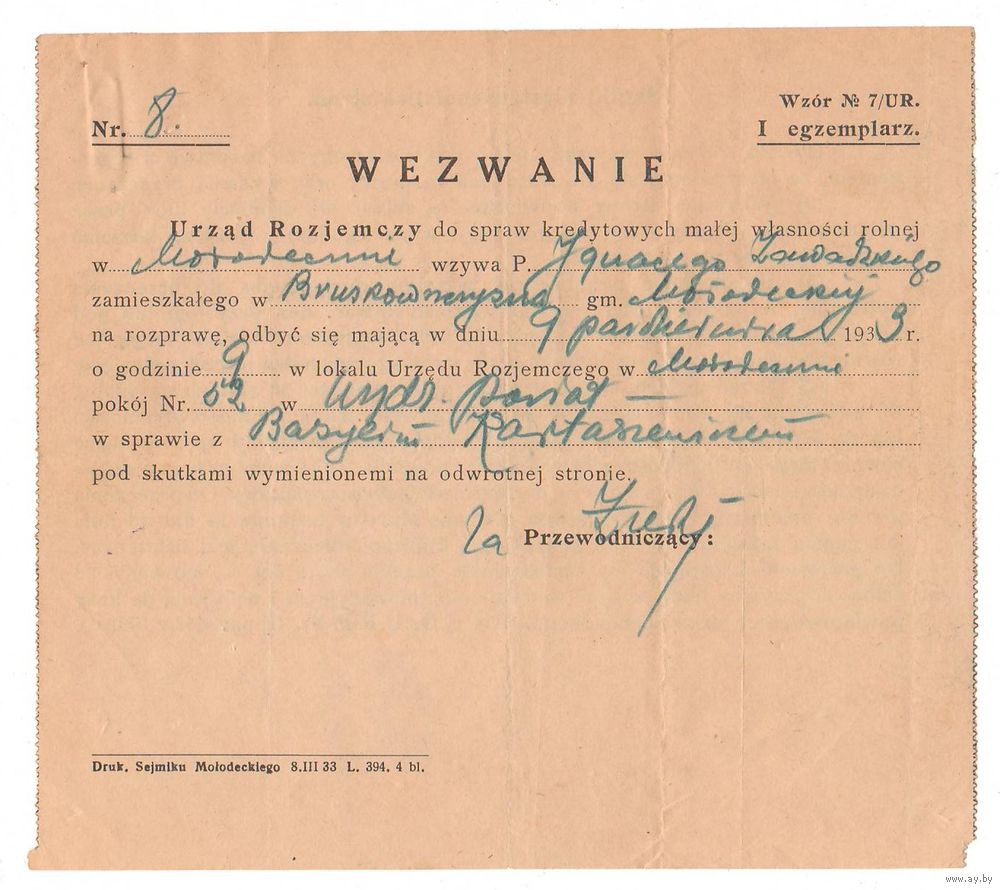 Wzór № 7/UR.
Nr. 8. I egzemplarz.
WEZWANIE
Urząd Rozjemczy do spraw kredytowych małej własności rolnej
w Mołodecznie wzywa P. Ignacego Zawadzkiego
zamieszkałego w gm. Mołodeckiej
na rozprawę, odbyć się mającą w dniu 9 października 1933 r.
o godzinie 9 w lokalu Urzędu Rozjemczego w Mołodecznie
pokój Nr. 52 w Wydz. Powiat
w sprawie z Bazylim
pod skutkami wymienionemi na odwrotnej stronie.
Za Przewodniczący:
Druk. Sejmiku Mołodeckiego 8.III 33 L. 394. 4 bl.
www.ay.by